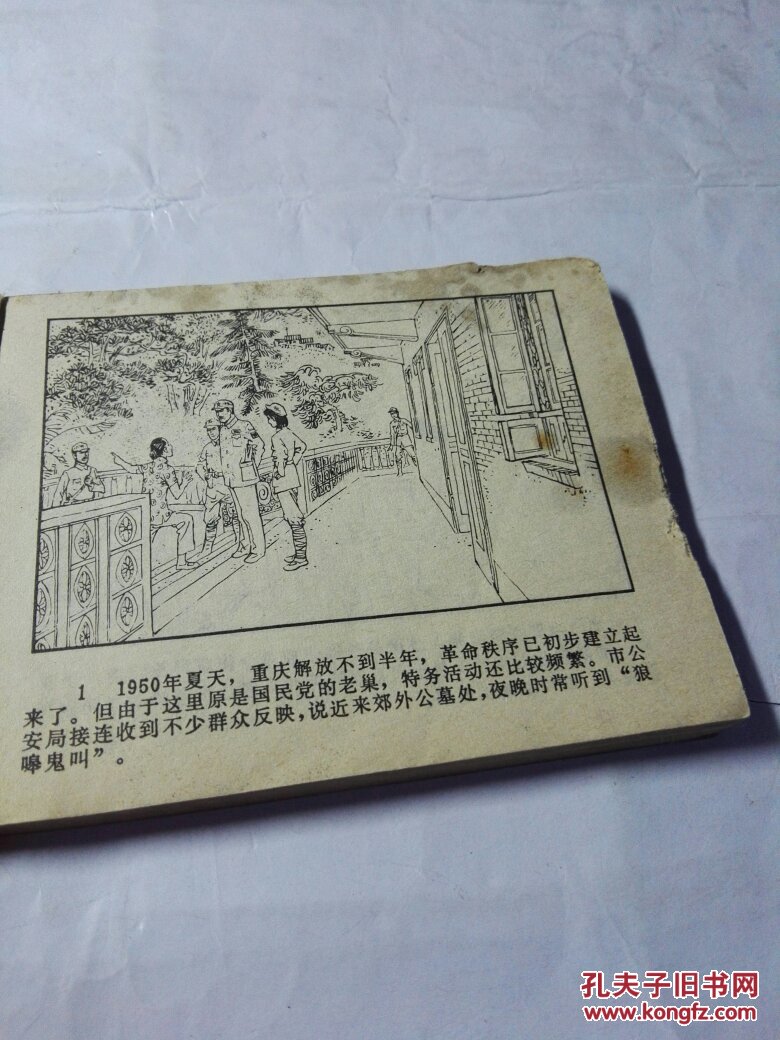 1 1950年夏天，重庆解放不到半年，革命秩序已初步建立起
来了。但由于这里原是国民党的老巢，特务活动还比较频繁。市公
安局接连收到不少群众反映，说近来郊外公墓处，夜晚时常听到“狼
嗥鬼叫”。
孔夫子旧书网
www.kongfz.com